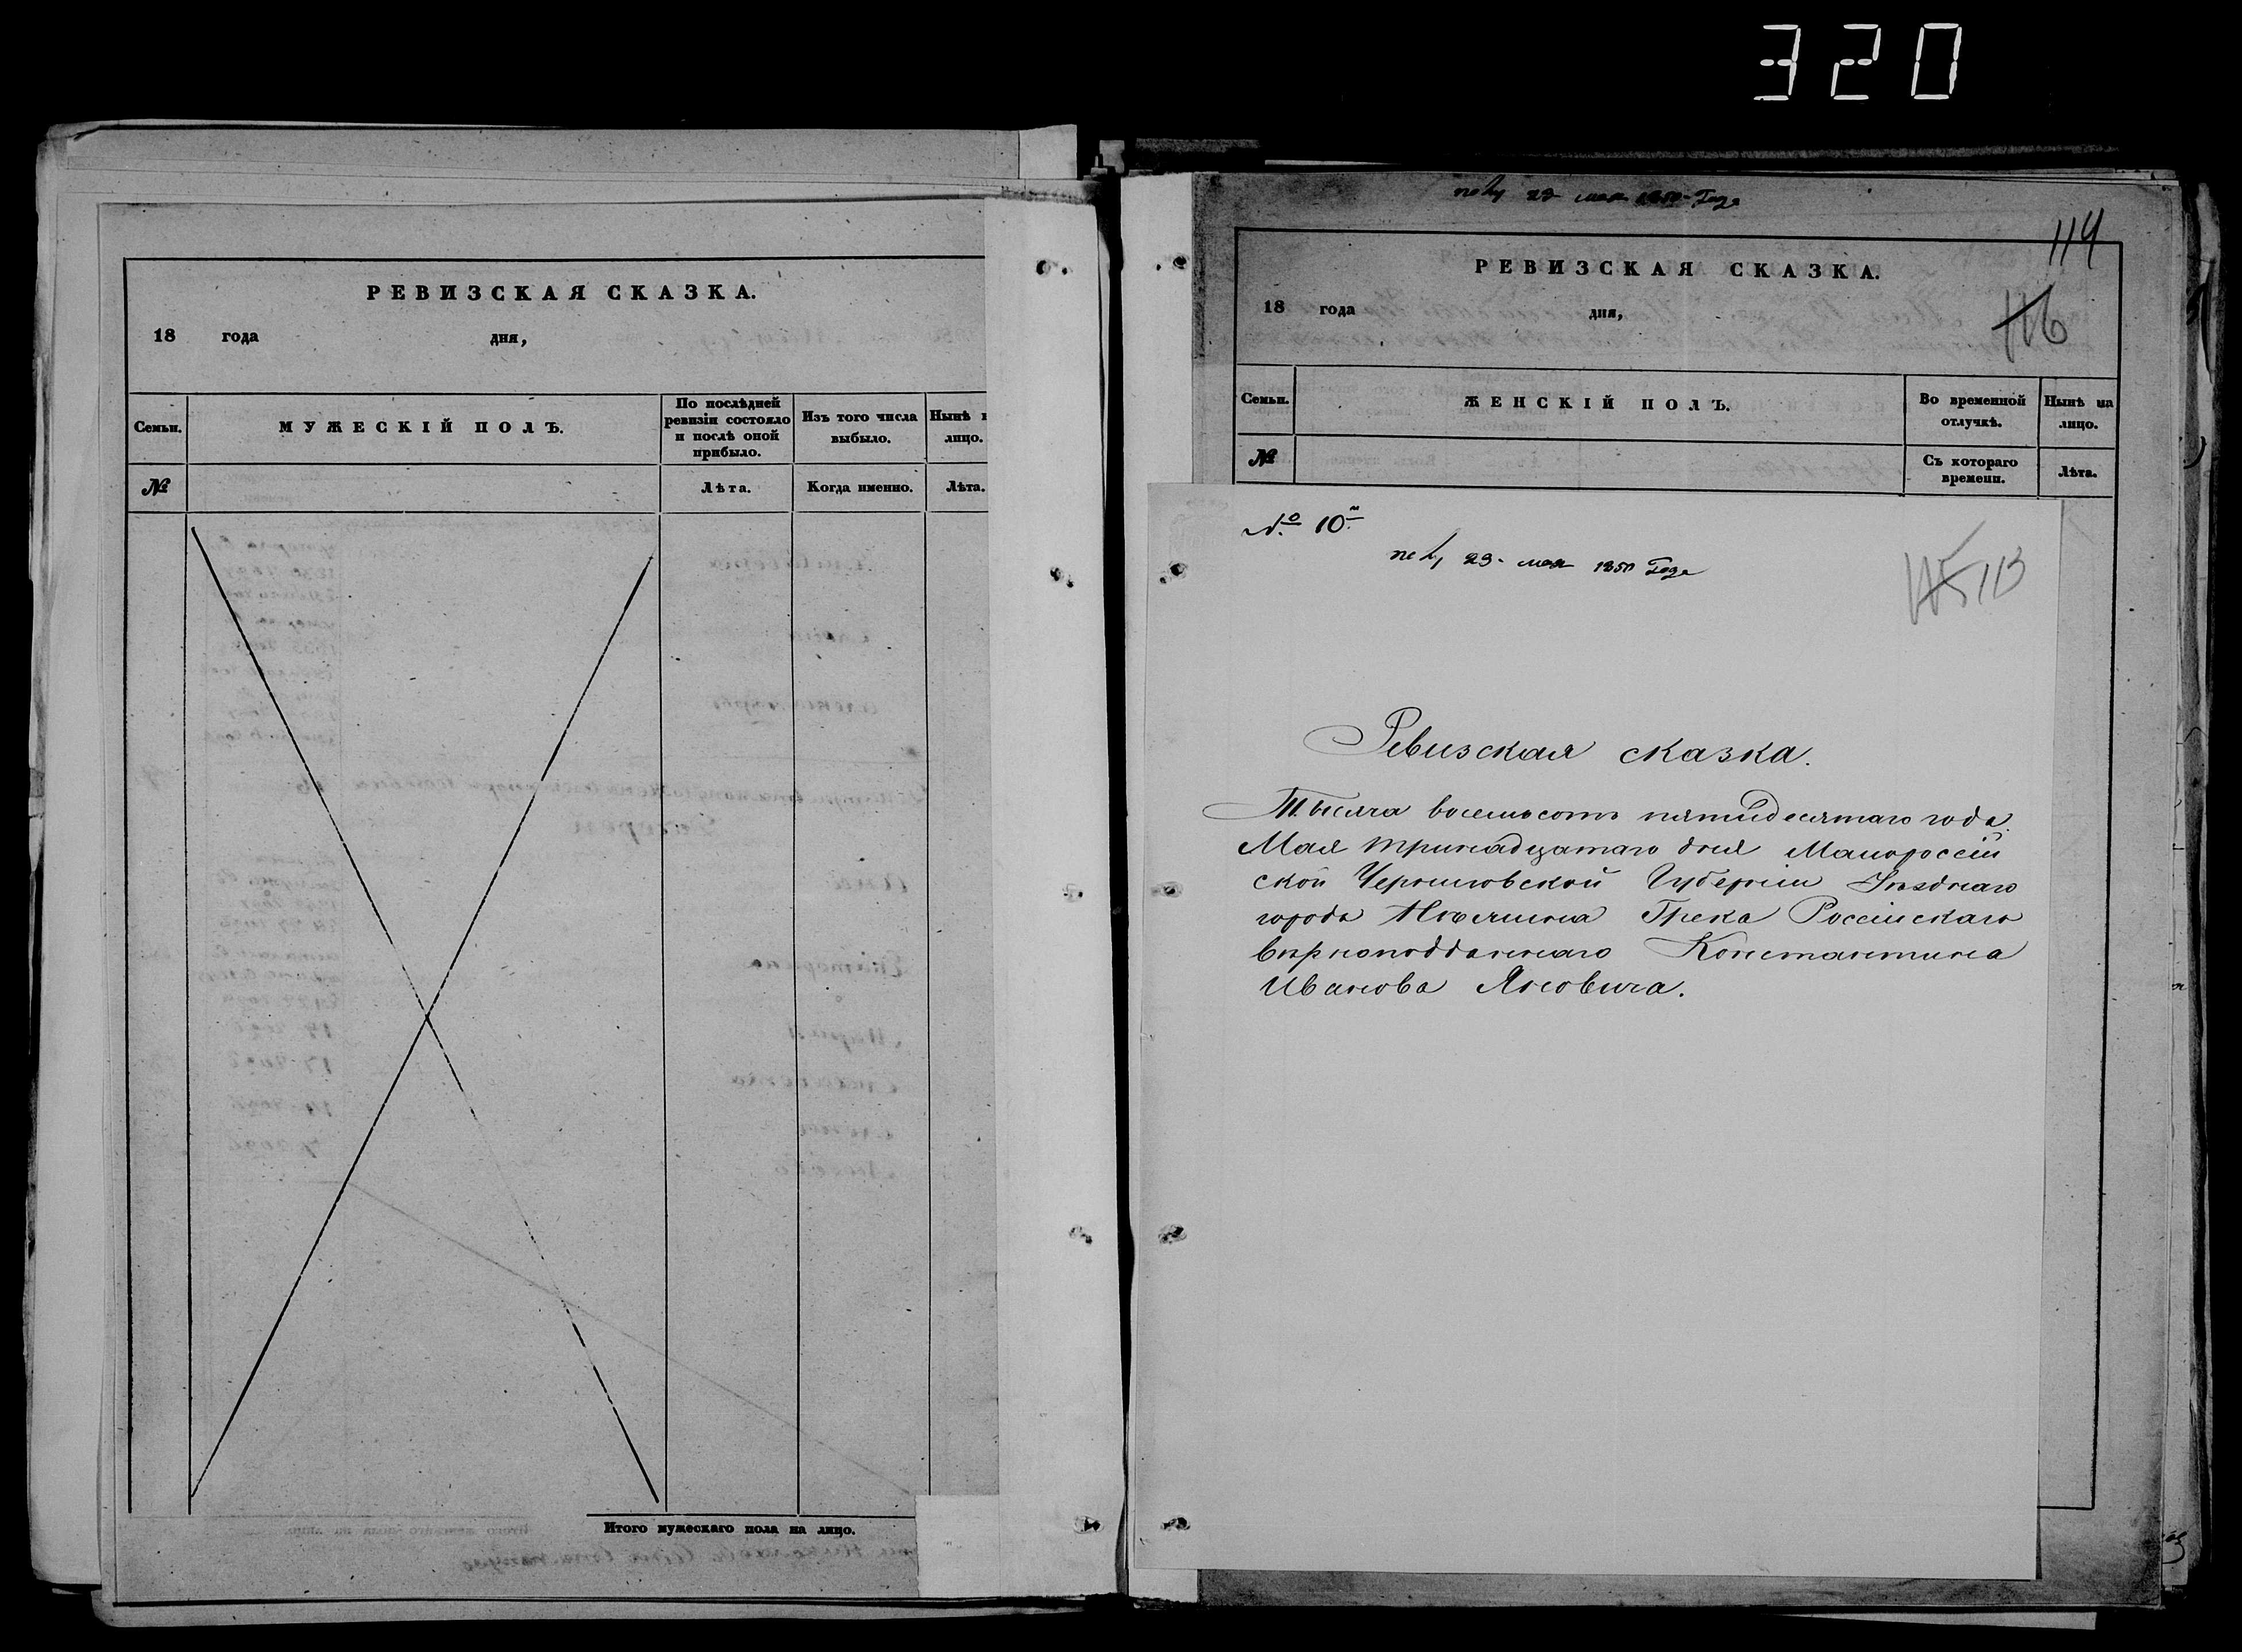 320
РЕВИЗСКАЯ СКАЗКА.
18 года дня,
Семьи.
МУЖЕСКІЙ ПОЛЪ.
По послѣдней
ревизіи состояло
и послѣ оной
прибыло.
Изъ того числа
выбыло.
Нынѣ н
лицо.
№
Лѣта.
Когда именно.
Лѣта.
Итого мужескаго пола на лицо.
23 мая 1850 Года
114
РЕВИЗСКАЯ СКАЗКА.
18 года дня,
116
Семьи.
ЖЕНСКІЙ ПОЛЪ.
Во временной
отлучкѣ.
Нынѣ на
лицо.
№
Съ котораго
времени.
Лѣта.
№ 10й
23 мая 1850 Года
115 113
Ревизская сказка.
Тысяча восемьсотъ пятидесятаго года
Мая тринадцатаго дня Малоросcій
ской Черниговской Губерніи Уѣзднаго
города Нѣжина Грека Россійскаго
вѣрноподданнаго Константина
Иванова Яновича.